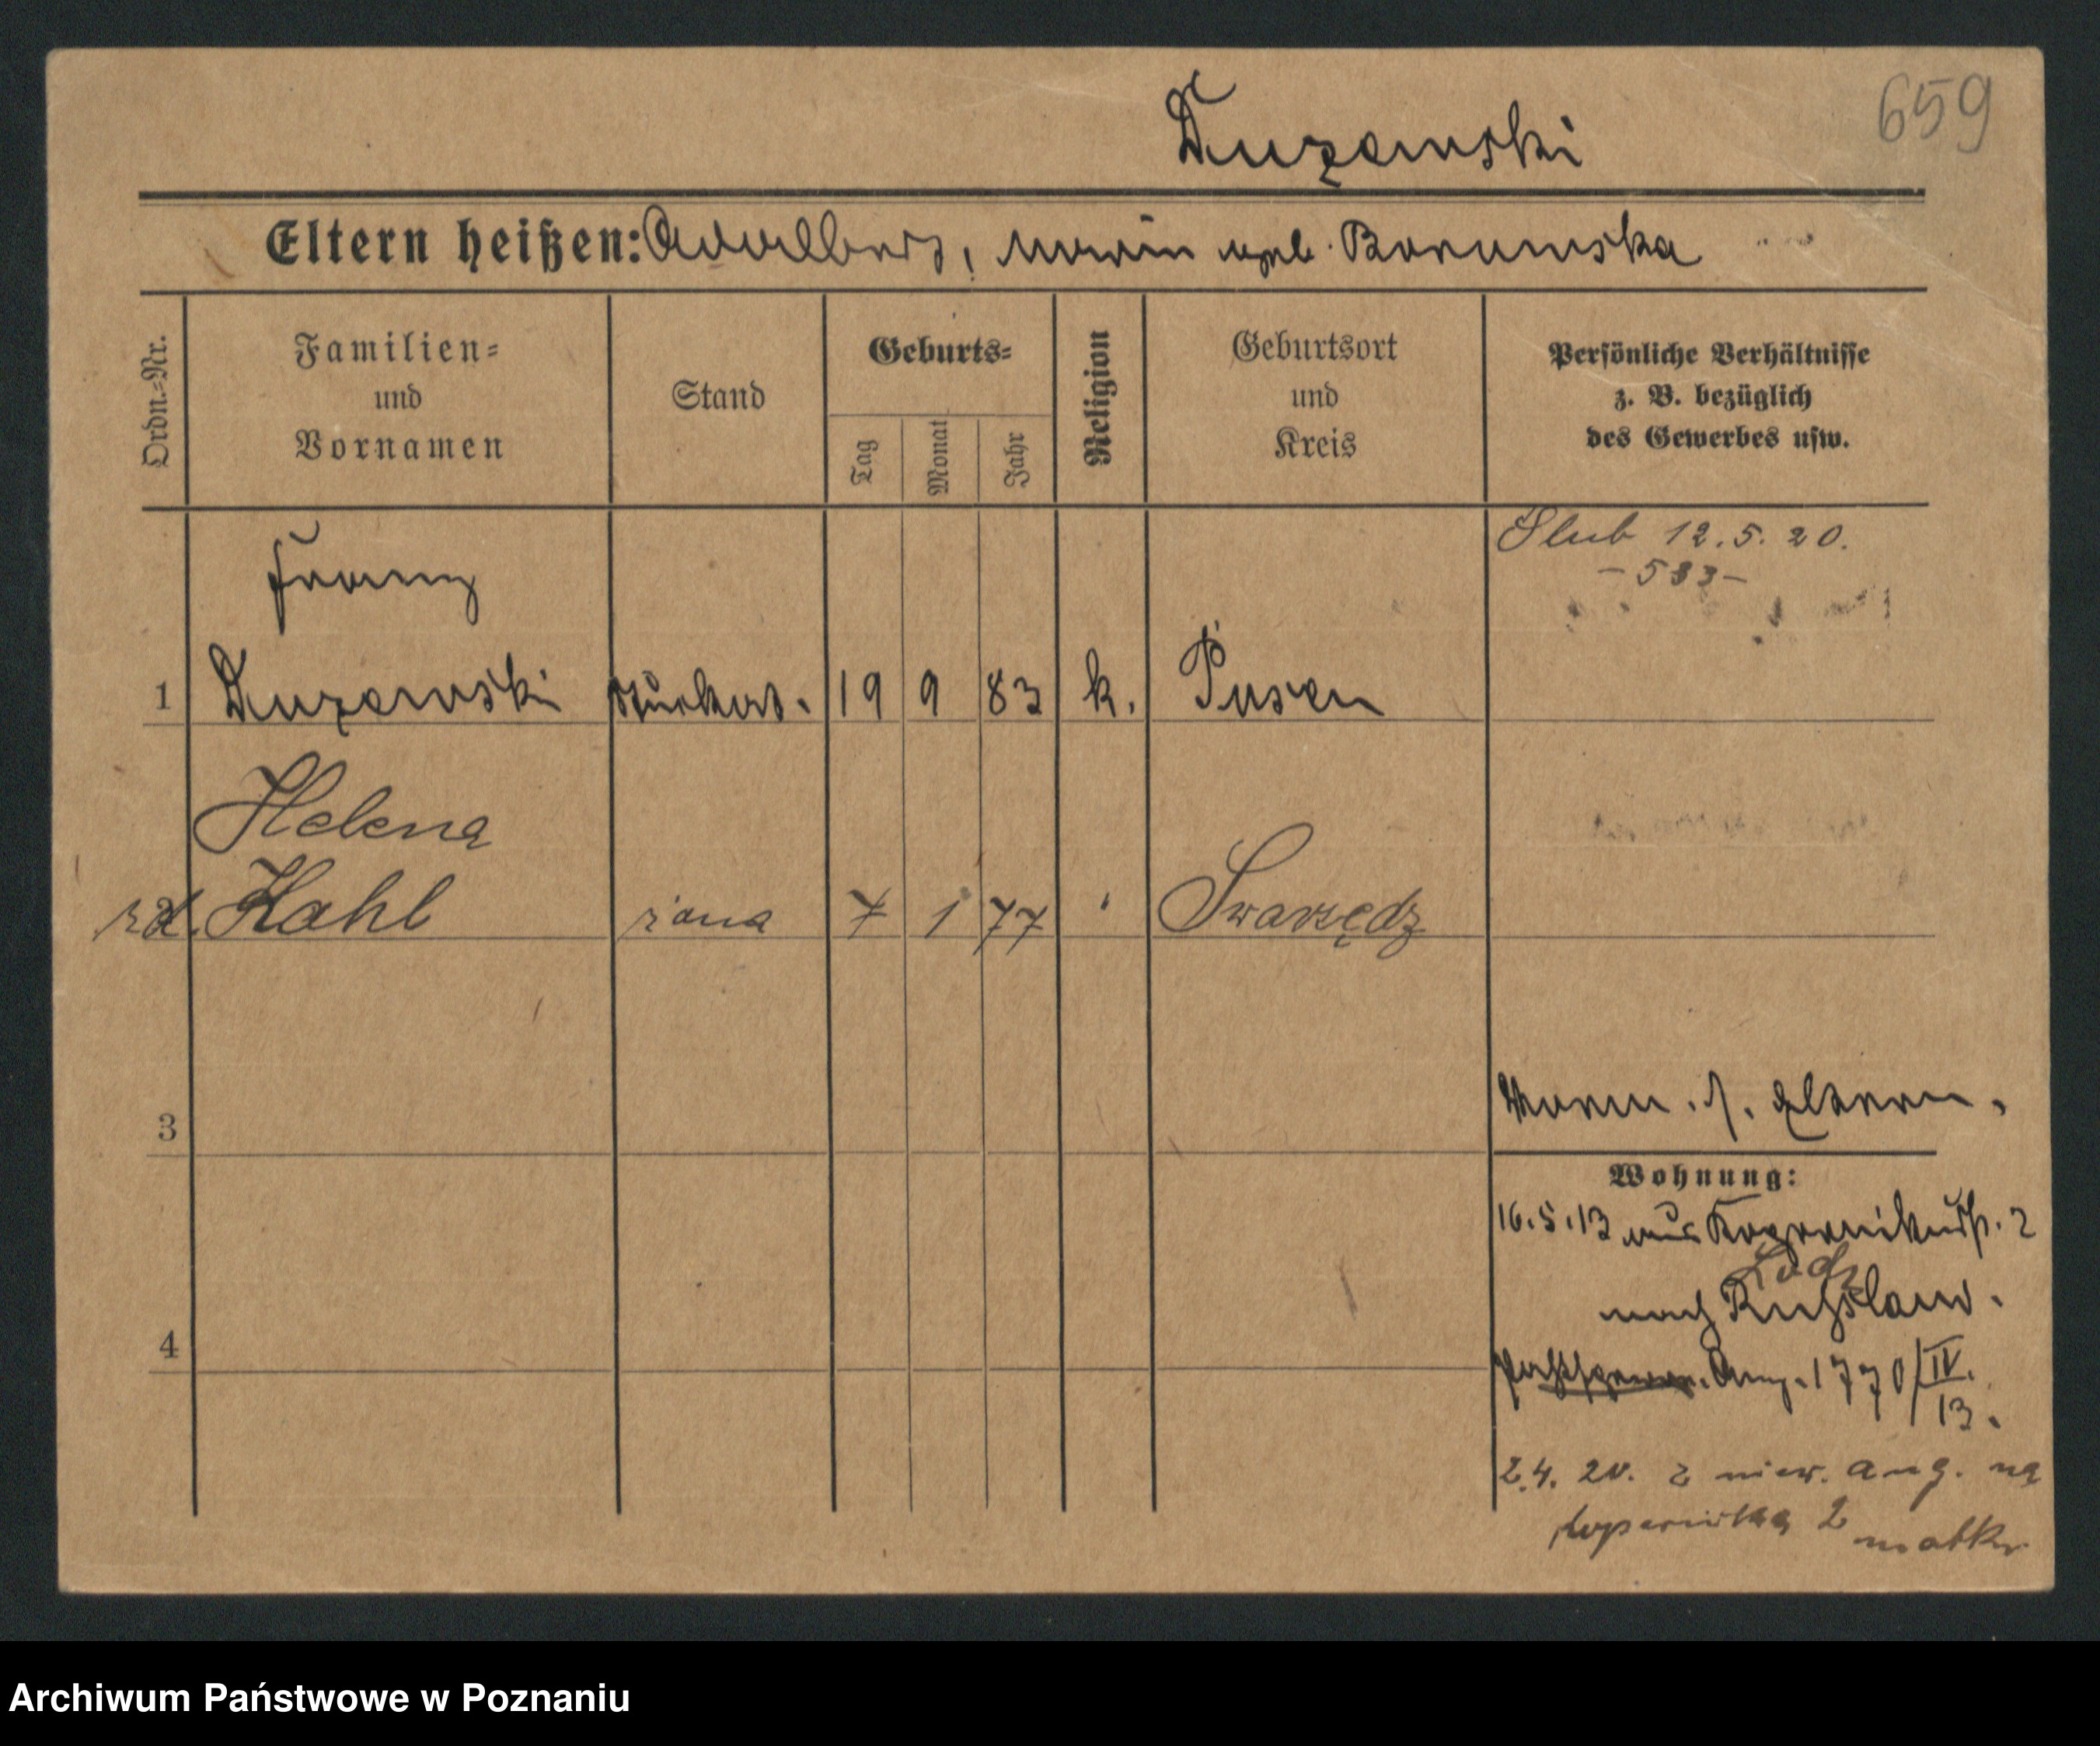 659
Duzowski
Eltern heißen: Adalbert, Maria geb. Borowska
Ordn.=Nr.
Familien=
und
Vornamen
Stand
Geburts=
Tag
Monat
Jahr
Religion
Geburtsort
und
Kreis
Persönliche Verhältnisse
z. B. bezüglich
des Gewerbes usw.
Slub 12.5.20.
- 533 -
Franz
1 19 9 83 k. Posen
Helena
Kahl żona 7 1 77 " Swarzędz
3
s. Eltern.
Wohnung:
16.5.13 aus 2
Lodz
nach Russland.
4
Ang. 1770/IV.
13.
2.4.20. z niew. ang. na
2 matka
Archiwum Państwowe w Poznaniu